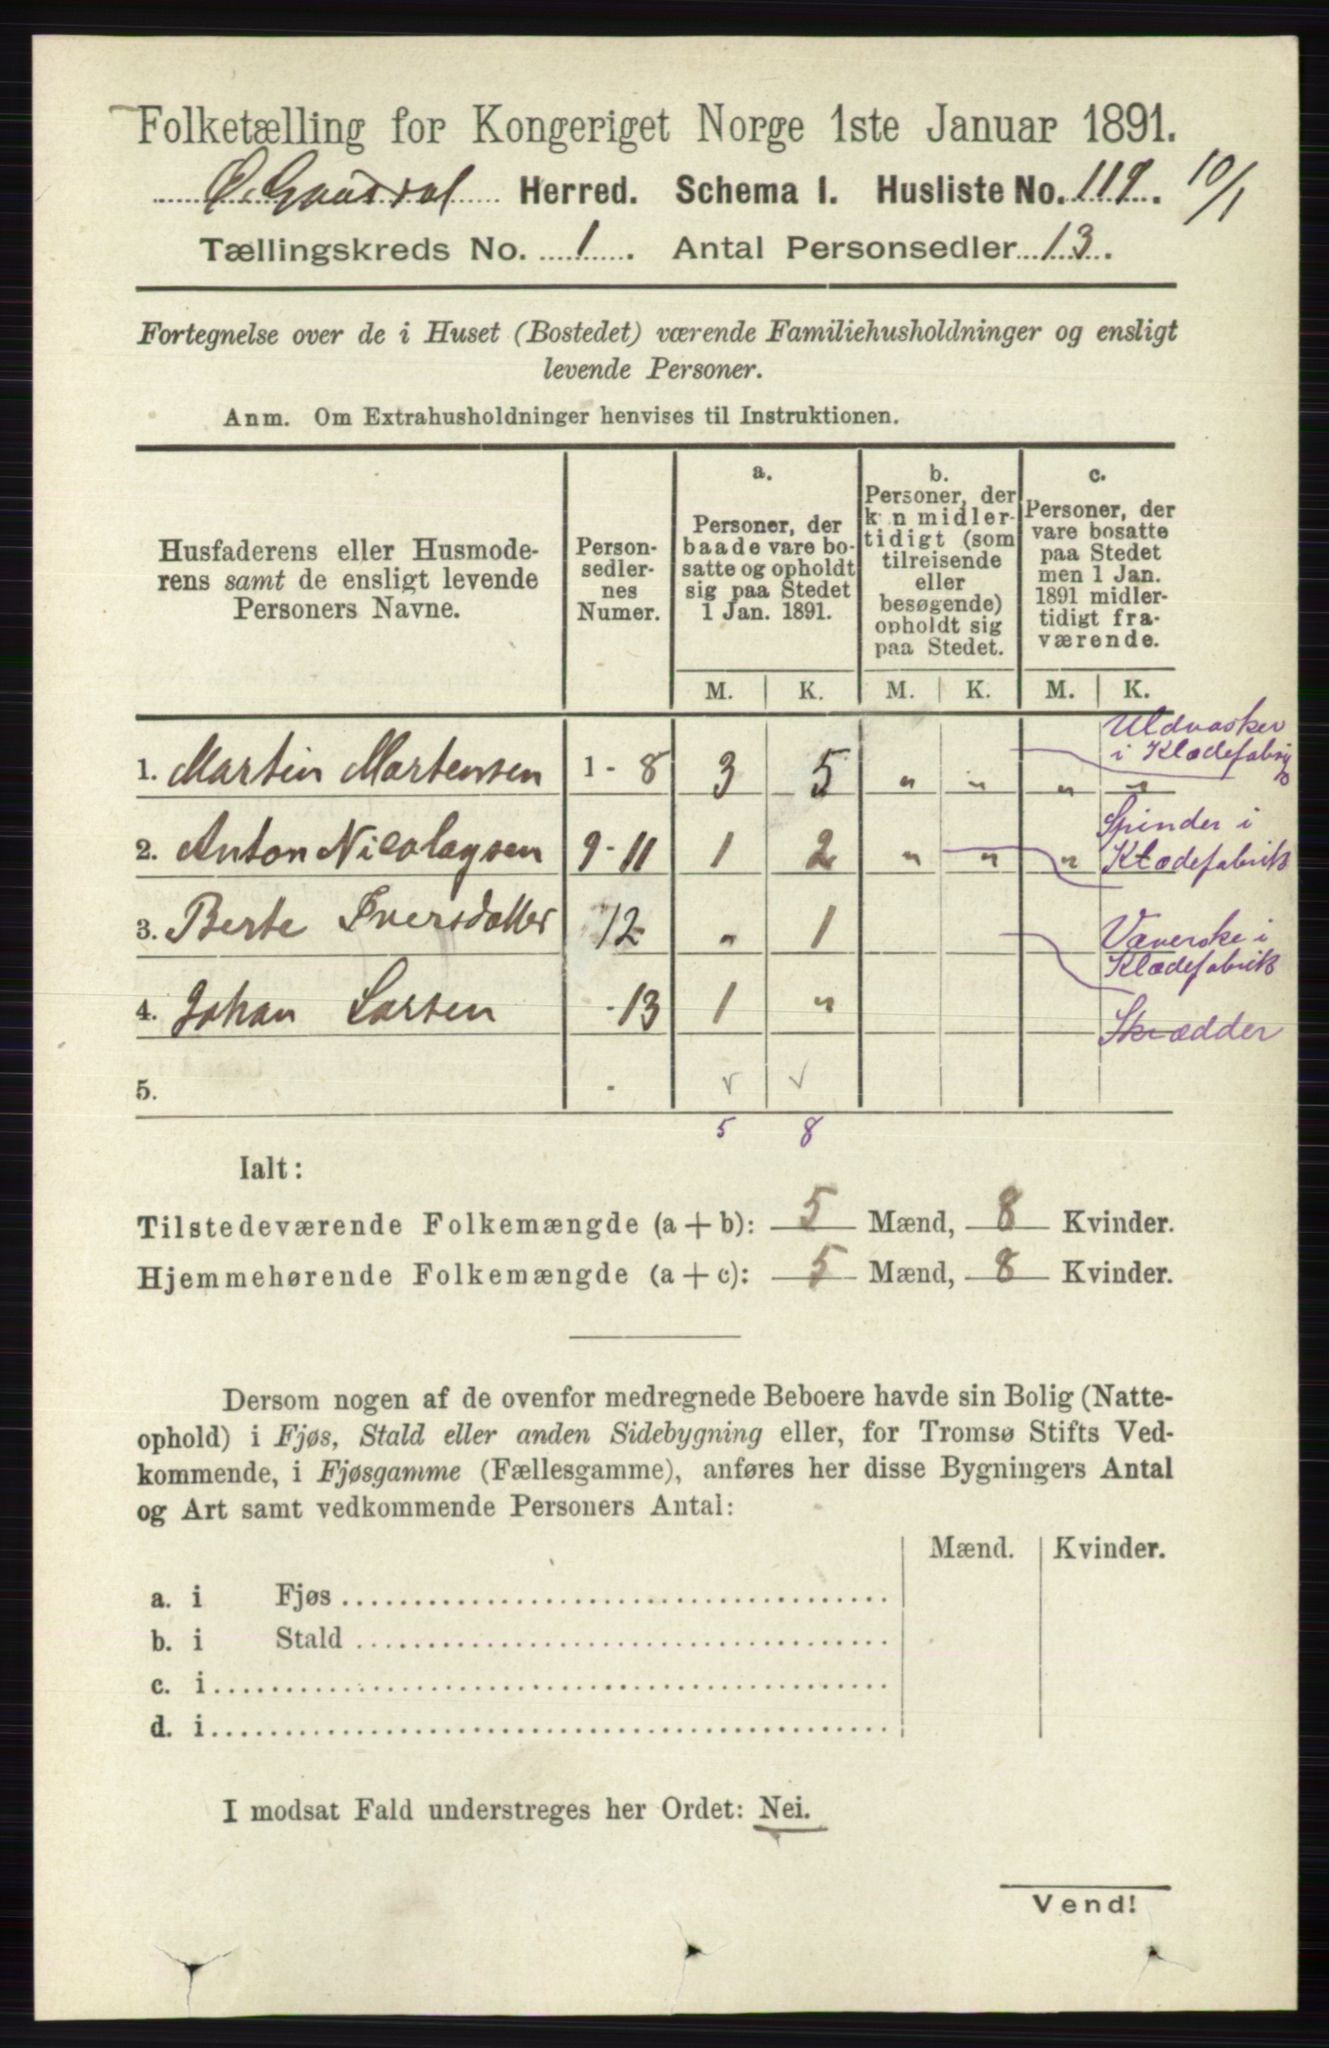 Folketælling for Kongeriget Norge 1ste Januar 1891.
Ø. Gausdal Herred. Schema I. Husliste No. 119. 10/1
Tællingskreds No. 1. Antal Personsedler 13.
Fortegnelse over de i Huset (Bostedet) værende Familiehusholdninger og ensligt
levende Personer.
Anm. Om Extrahusholdninger henvises til Instruktionen.
Husfaderens eller Husmode-
rens samt de ensligt levende
Personers Navne.
Person-
sedler-
nes
Numer.
a.
Personer, der
baade vare bo-
satte og opholdt
sig paa Stedet
1 Jan. 1891.
b.
Personer, der
k n midler-
tidigt (som
tilreisende
eller
besøgende)
opholdt sig
paa Stedet.
c.
Personer, der
vare bosatte
paa Stedet
men 1 Jan.
1891 midler-
tidigt fra-
værende.
M. K. M. K. M. K.
Uldvasker
i Klædefabrig
1. Martin Martensen 1-8 3 5 " " " "
Spinder i
Klædefabrik
2. Anton Nicolaysen 9-11 1 2 " " "
3. Berte Iversdatter 12 " 1
Væverske i
Klædefabrik
4. Johan Larsen -13 1 "
Skrædder
5. - v v
5 8
Ialt:
Tilstedeværende Folkemængde (a + b): 5 Mænd, 8 Kvinder.
Hjemmehørende Folkemængde (a + c): 5 Mænd, 8 Kvinder.
Dersom nogen af de ovenfor medregnede Beboere havde sin Bolig (Natte-
ophold) i Fjøs, Stald eller anden Sidebygning eller, for Tromsø Stifts Ved-
kommende, i Fjøsgamme (Fællesgamme), anføres her disse Bygningers Antal
og Art samt vedkommende Personers Antal:
Mænd. Kvinder.
a. i Fjøs
b. i Stald
c. i
d. i
I modsat Fald understreges her Ordet: Nei.
Vend!